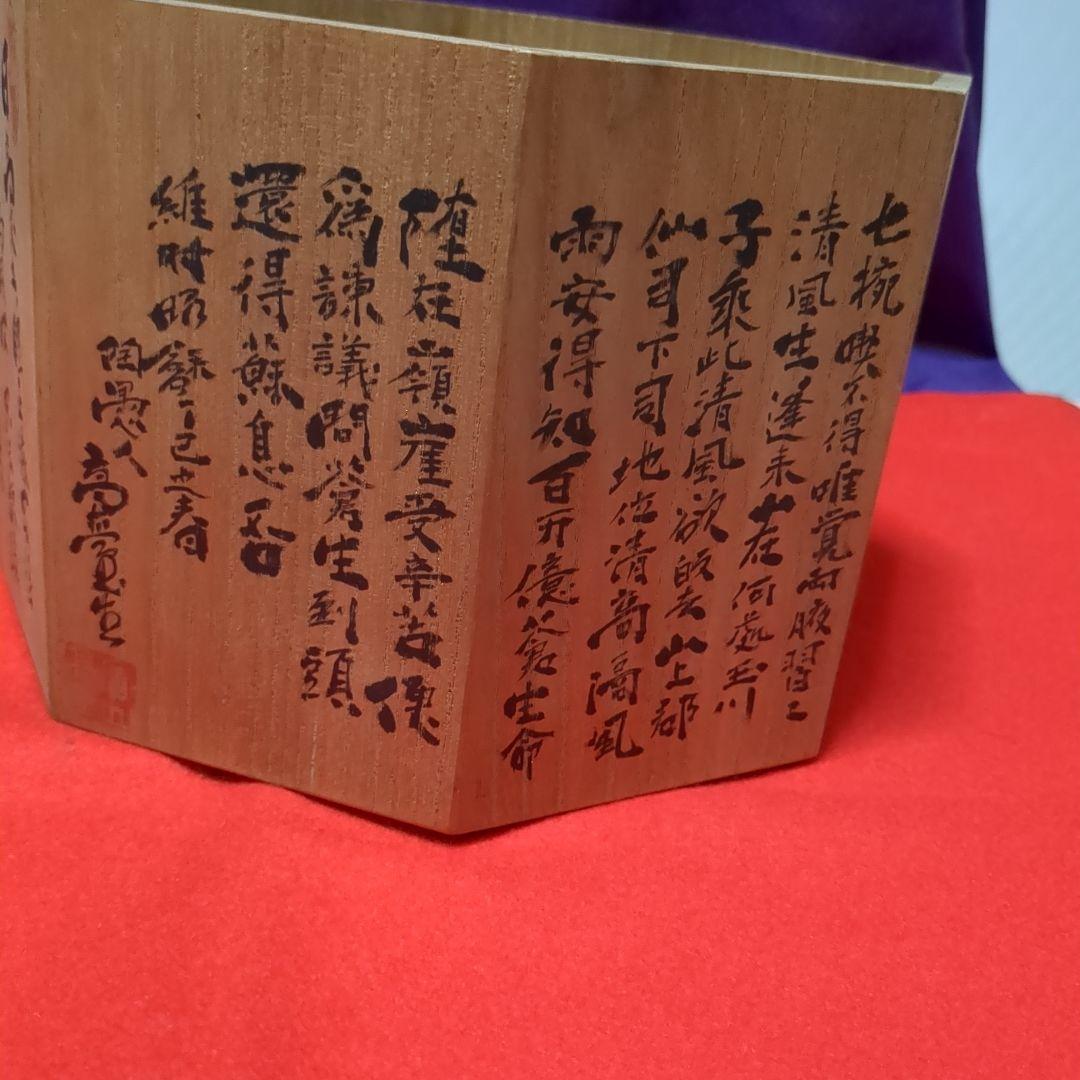 七椀喫不得唯覚両腋習〻
清風生蓬来山在何處玉川
子乘此清風欲皈去山上郡
仙司下司地位清高隔風
雨安得知百万億蒼生命
堕在巓崖受辛苦便
為諌議問蒼生到頭
還得蘇息否
維時昭龢丁巳立春
陶愚人